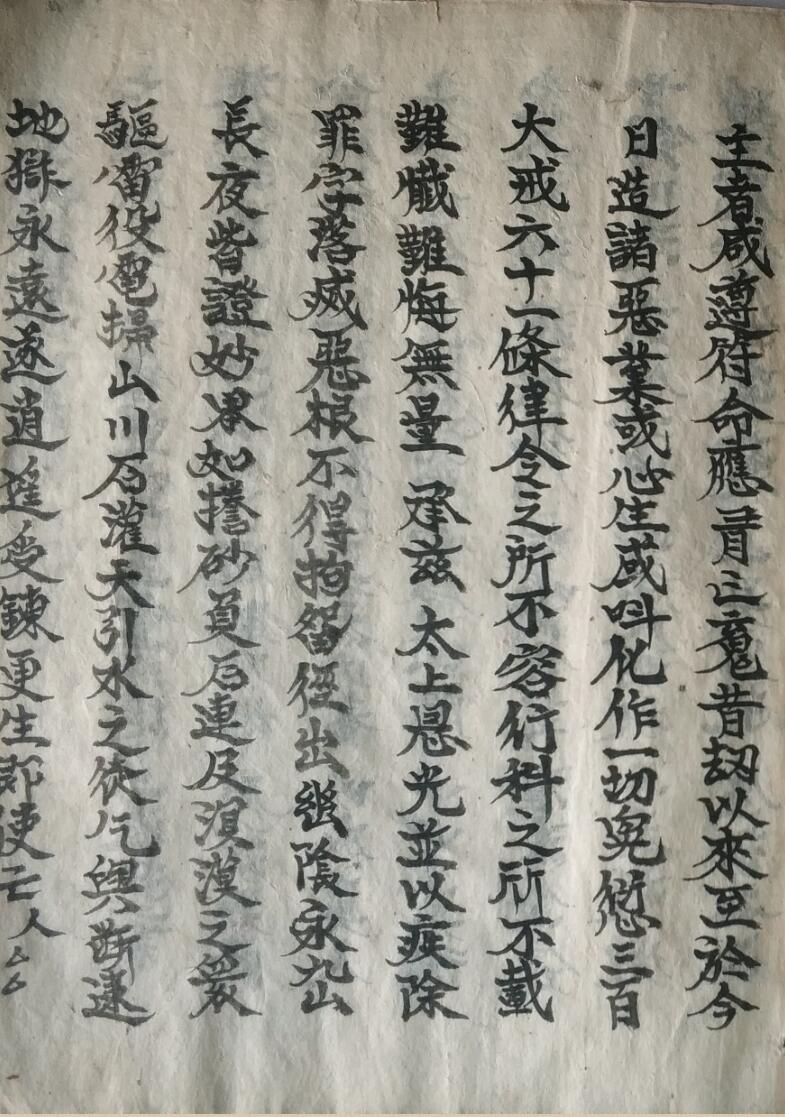 主者咸遵符命應口亡魂昔劫以來至於今
日造諸惡業或心生或口化作一切冤愆三百
大戒六十一條律令之所不容行科之所不載
難懺難悔無量承茲太上慈光並以疾除
罪字落滅惡根不得拘留徑出幽陰永出
長夜皆證妙果如捲砂負石連及溟漠之
驅雷役電掃山川石灌天引水之徒乞與斷逮
地獄永遠逐逍遥受鍊更生即使亡人厶厶